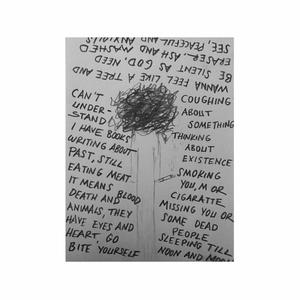 WANNA FEEL LIKE A TREE AND
BE SILENT AS GOD, NEED
ERASER.., ASH AND MASHED
SEE, PEACEFUL AND ANXIOUS
CAN'T
UNDER-
STAND
I HAVE BOOKS
WRITING ABOUT
PAST, STILL
EATING MEAT
IT MEANS
DEATH AND BLOOD
ANIMALS, THEY
HAVE EYES AND
HEART, GO
BITE YOURSELF
COUGHING
ABOUT
SOMETHING
THINKING
ABOUT
EXISTENCE
SMOKING
YOU, M OR
CIGARATTE
MISSING YOU OR
SOME DEAD
PEOPLE
SLEEPING TILL
NOON AND